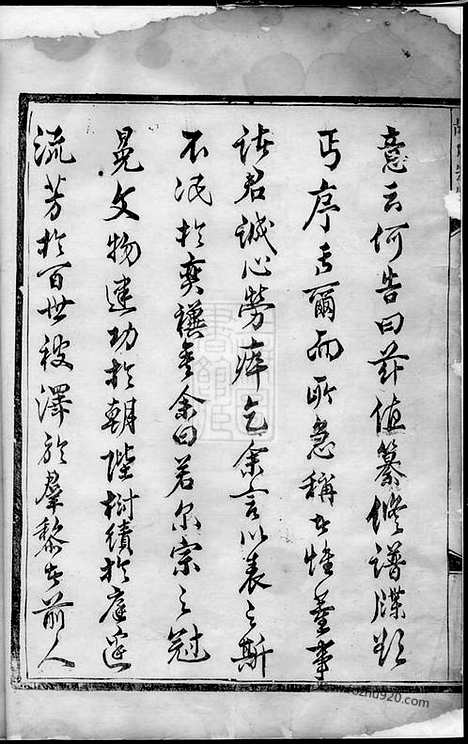 意云何告曰茲值纂修譜牒欲
丐序者爾而所急稱者惟董事
諸君誠心勞瘁乞余言以表之斯
不泯於奕禩矣余曰若尔宗之冠
冕文物建功於朝陛樹績於庭闈
流芳於百世被澤於羣黎者前人
www.fozhu920.com